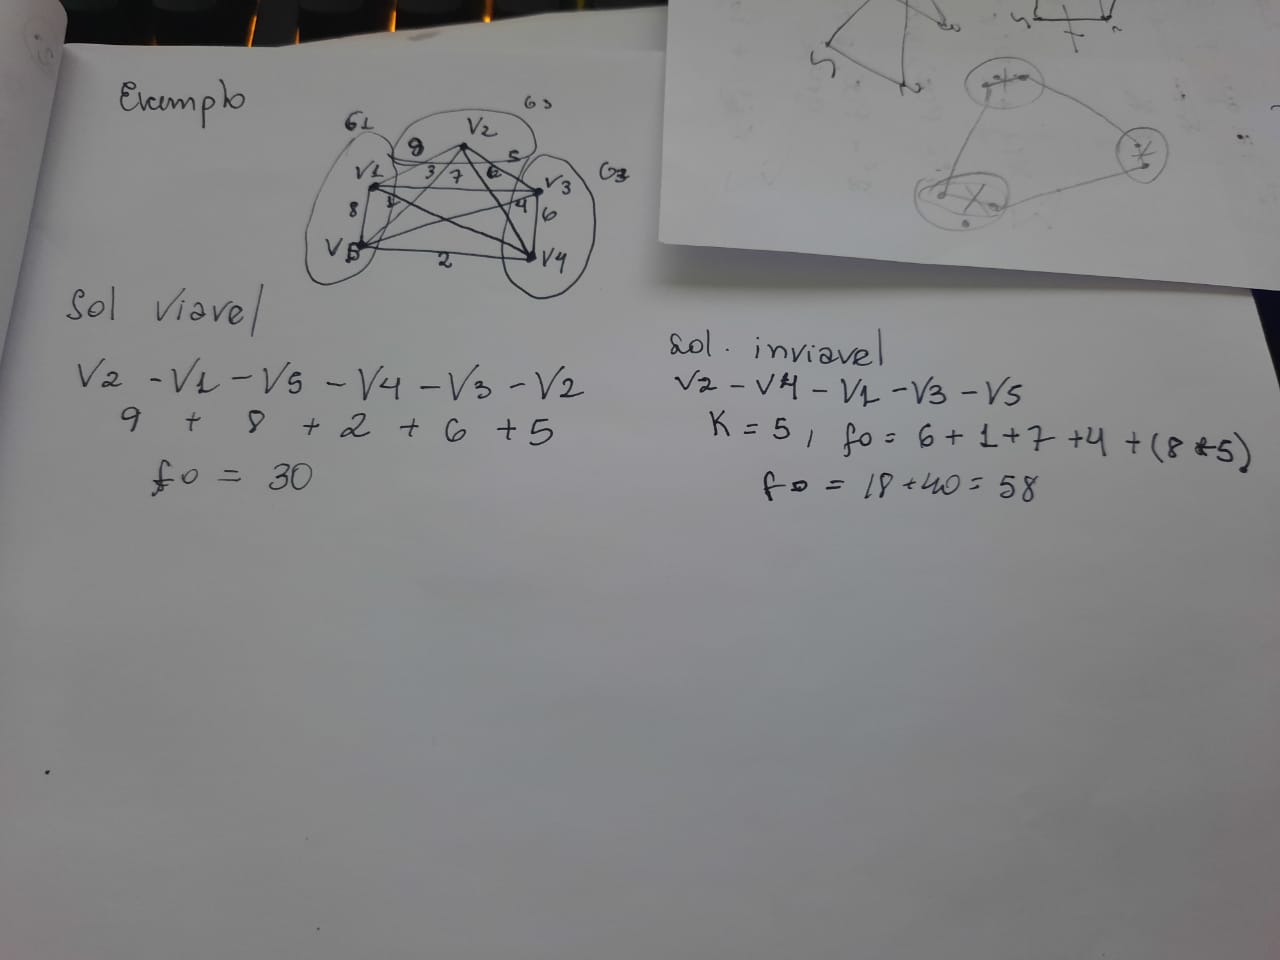 Exemplo
G1
G3
V2
9
5
V1
3
7
6
V3
G3
8
1
4
6
V5
2
V4
Sol Viavel
V2 - V1 - V5 - V4 - V3 - V2
9 + 8 + 2 + 6 + 5
fo = 30
Sol. inviavel
V2 - V4 - V1 - V3 - V5
K = 5, fo = 6 + 1 + 7 + 4 + (8 * 5)
fo = 18 + 40 = 58